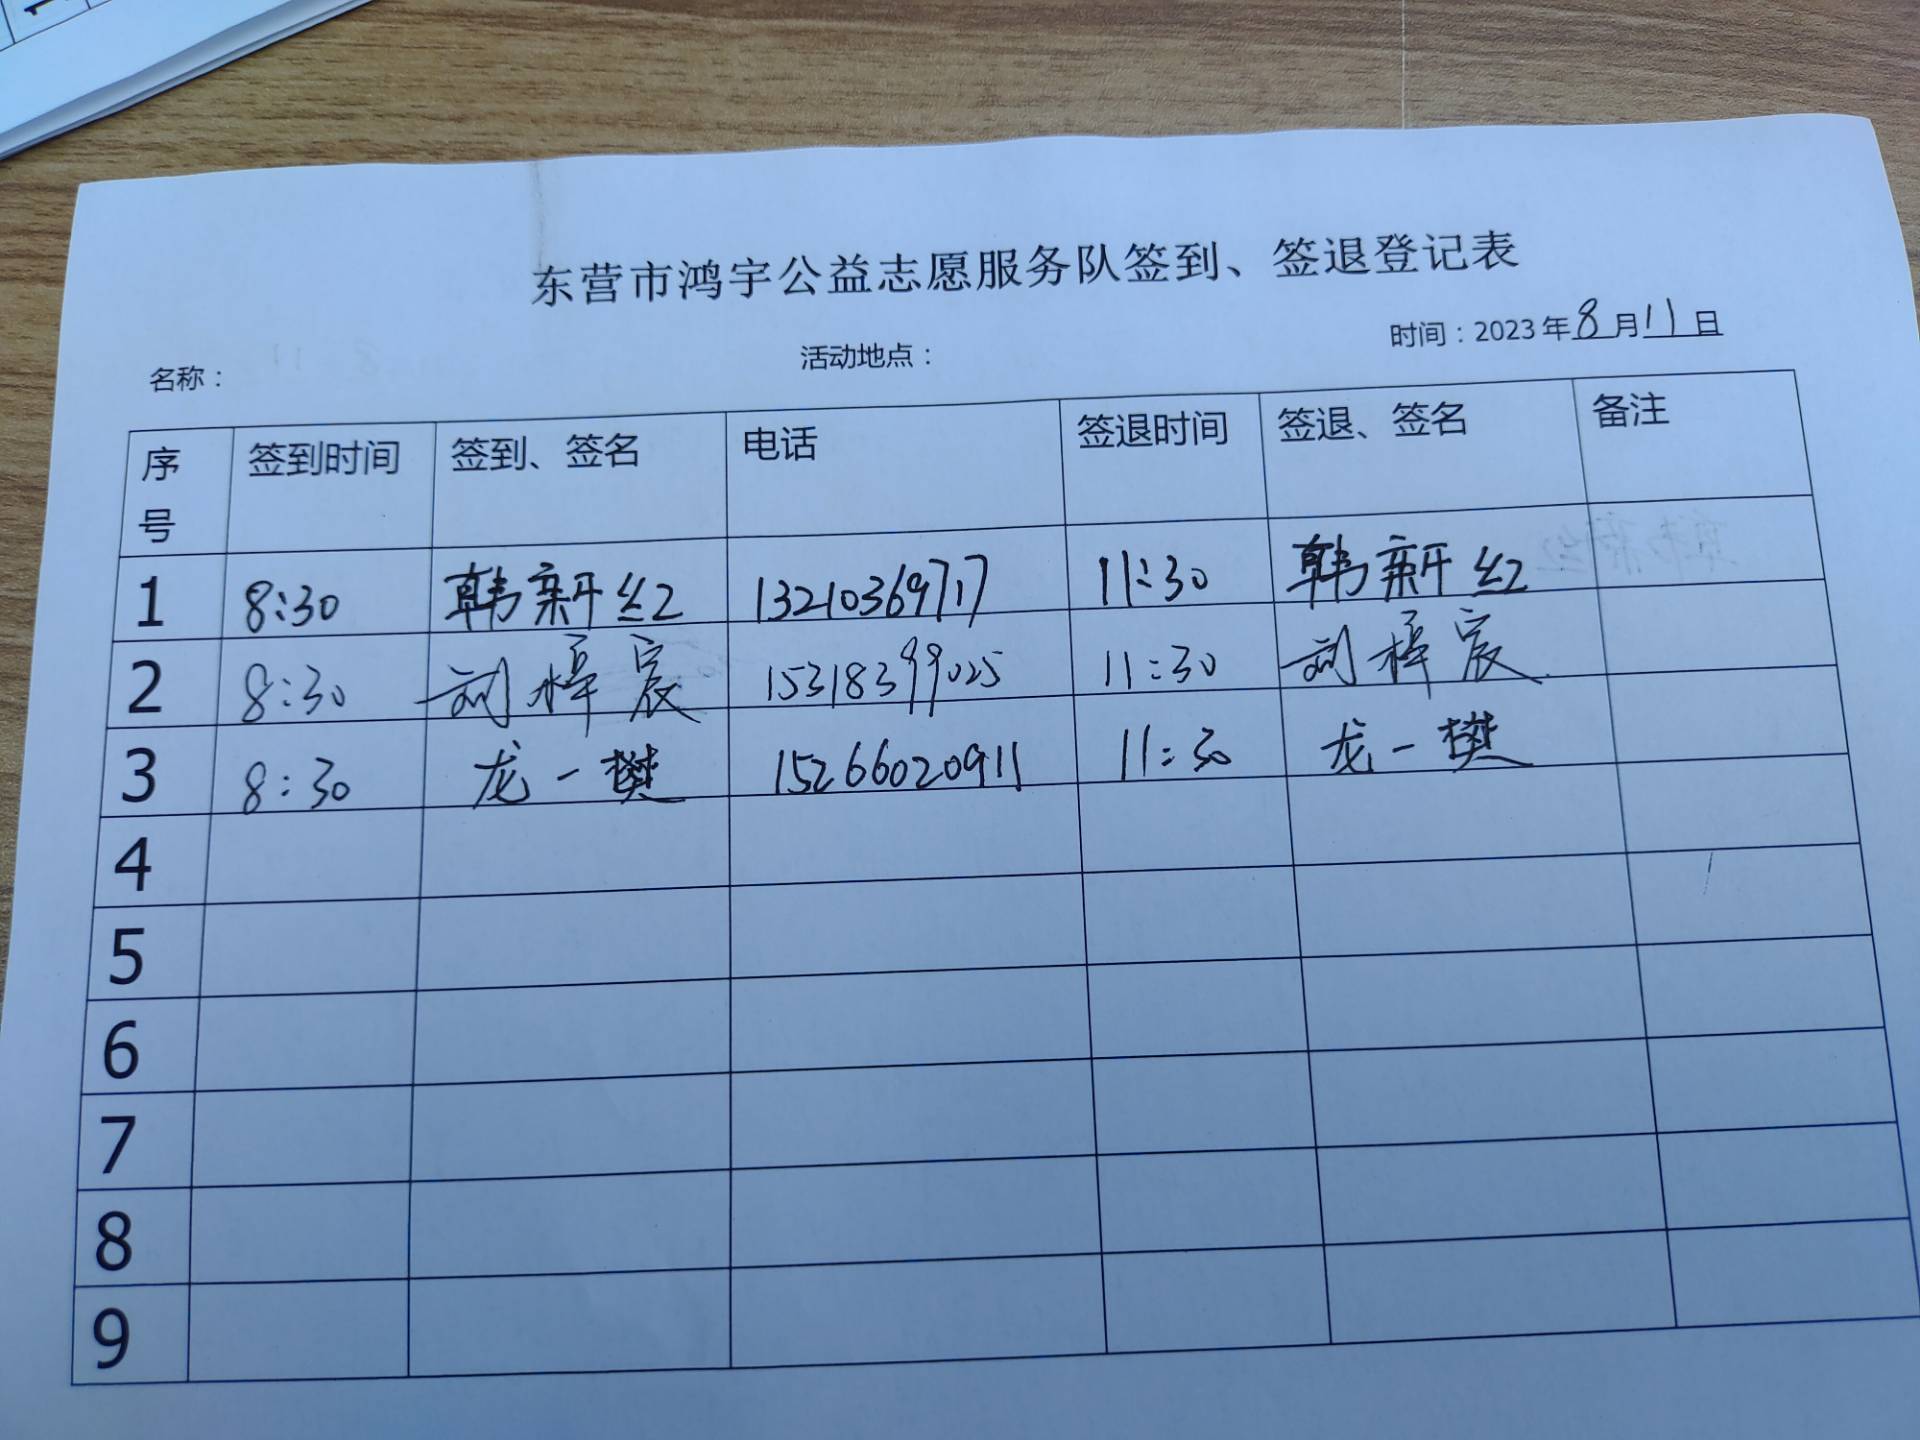 东营市鸿宇公益志愿服务队签到、签退登记表
名称： 活动地点： 时间：2023年8月11日
序号 签到时间 签到、签名 电话 签退时间 签退、签名 备注
1 8:30 韩新红 13210369717 11:30 韩新红
2 8:30 刘梓宸 15318399025 11:30 刘梓宸
3 8:30 龙一樊 15266020911 11:30 龙一樊
4
5
6
7
8
9